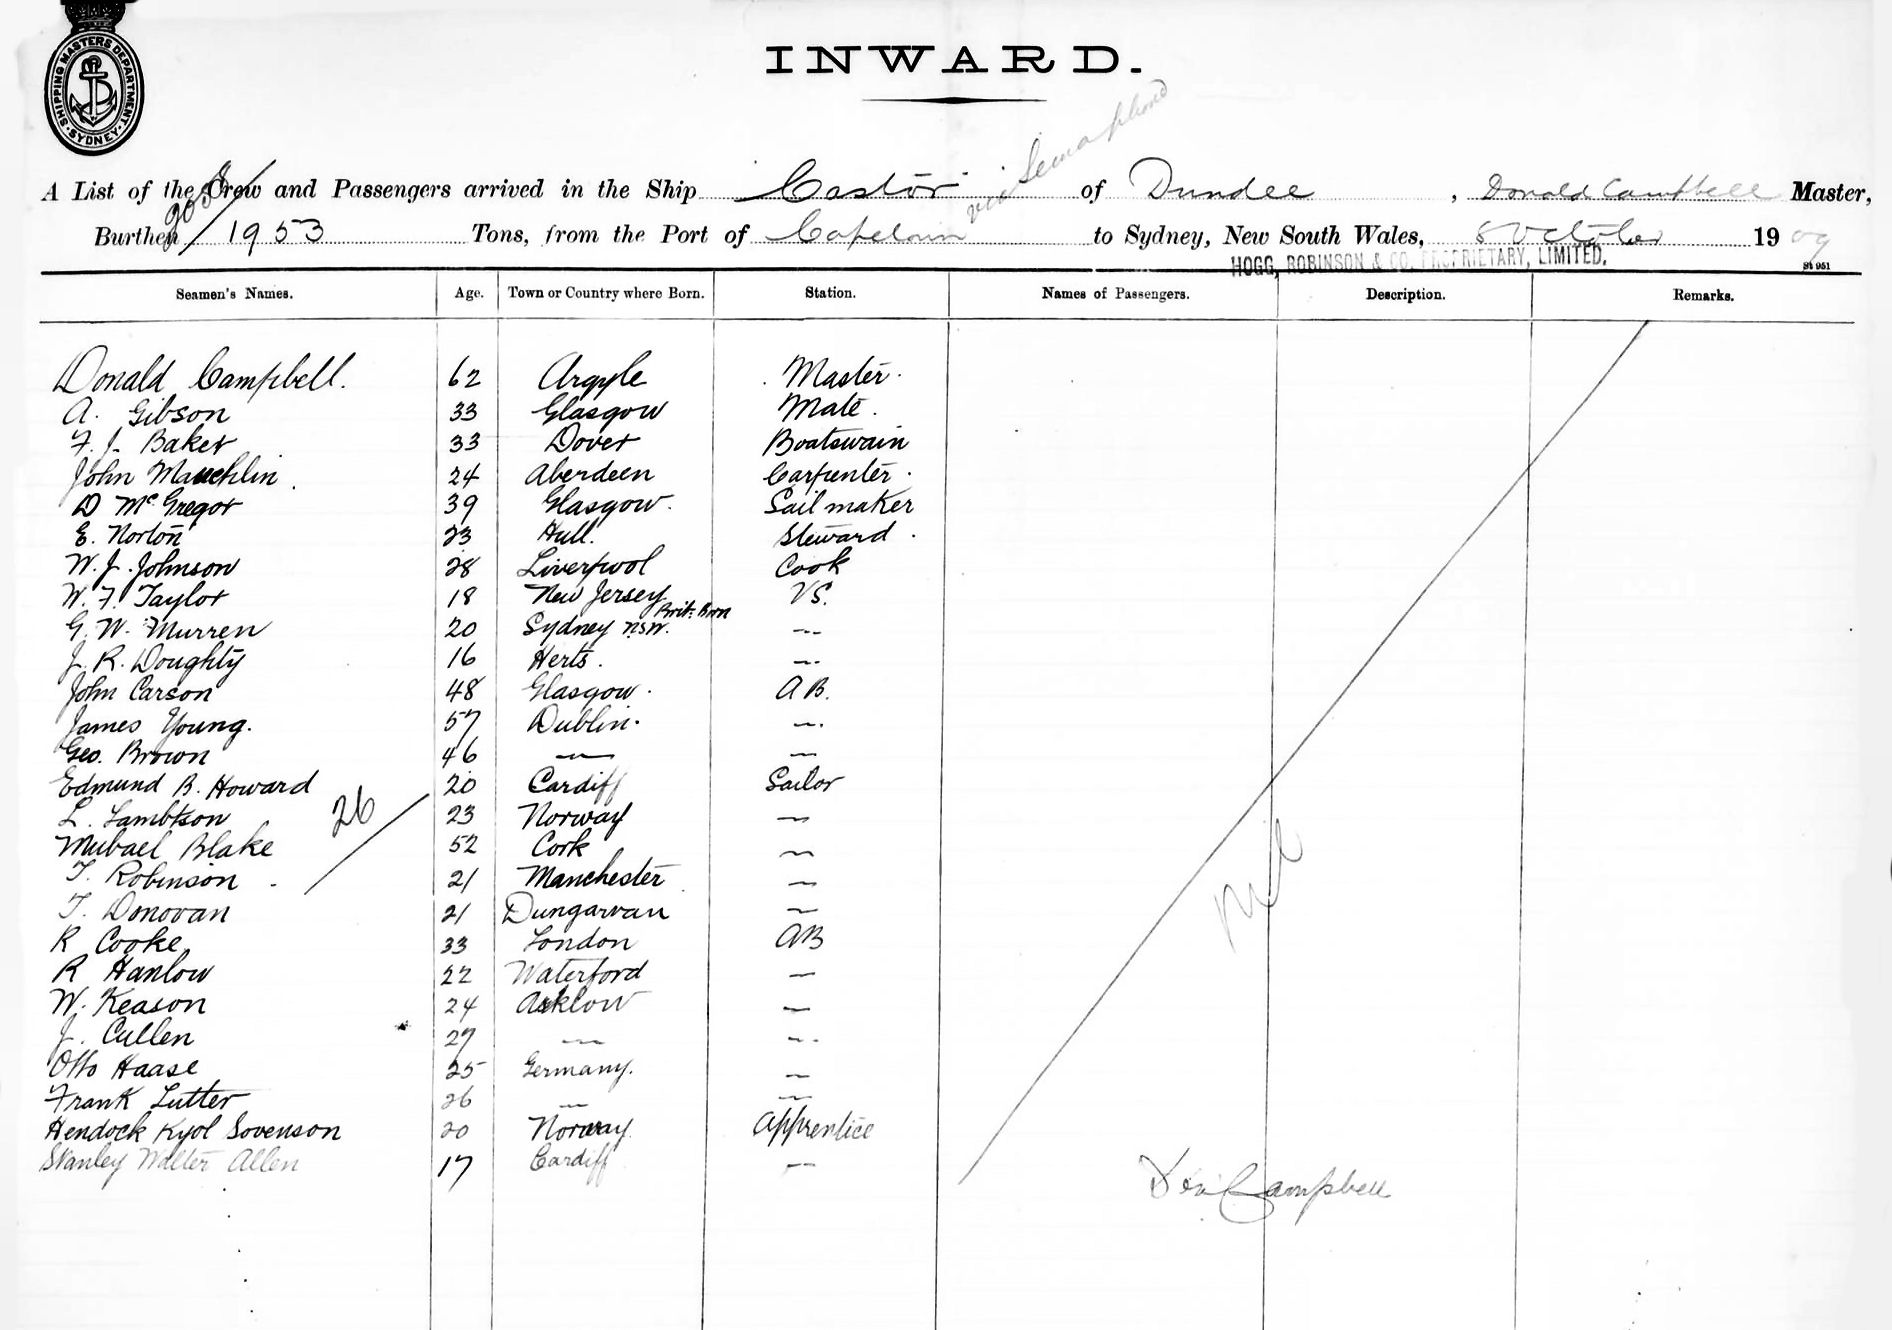 SHIPPING MASTERS DEPARTMENT
SYDNEY
INWARD.
via Semaphore
A List of the Crew and Passengers arrived in the Ship Castor of Dundee, Donald Campbell Master,
Burthen 1953 Tons, from the Port of Capetown to Sydney, New South Wales, 8 October 1909
HOGG, ROBINSON & CO. PROPRIETARY, LIMITED.
St 951
Seamen's Names. Age. Town or Country where Born. Station. Names of Passengers. Description. Remarks.
Donald Campbell. 62 Argyle Master.
A. Gibson 33 Glasgow Mate.
F. J. Baker 33 Dover Boatswain
John Mauchlin. 24 Aberdeen Carpenter.
D McGregor 39 Glasgow. Sailmaker
E. Norton 23 Hull. Steward.
W. J. Johnson 28 Liverpool Cook
W. F. Taylor 18 New Jersey Brit: Born VS.
G. W. Murren 20 Sydney NSW. --
J. R. Doughty 16 Herts. --
John Carson 48 Glasgow. AB.
James Young. 57 Dublin. --
Geo. Brown 46 -- --
Edmund B. Howard 20 Cardiff Sailor
26
L. Lambtson 23 Norway --
Michael Blake 52 Cork --
T. Robinson 21 Manchester --
T. Donovan 21 Dungarvan --
R Cooke 33 London AB
R Hanlow 22 Waterford --
W. Keason 24 Arklow --
J. Cullen 27 -- --
Otto Haase 25 Germany. --
Frank Lutter 26 -- --
Hendock Kyol Sovenson 20 Norway. Apprentice
Stanley Walter Allen 17 Cardiff --
Nil
Campbell